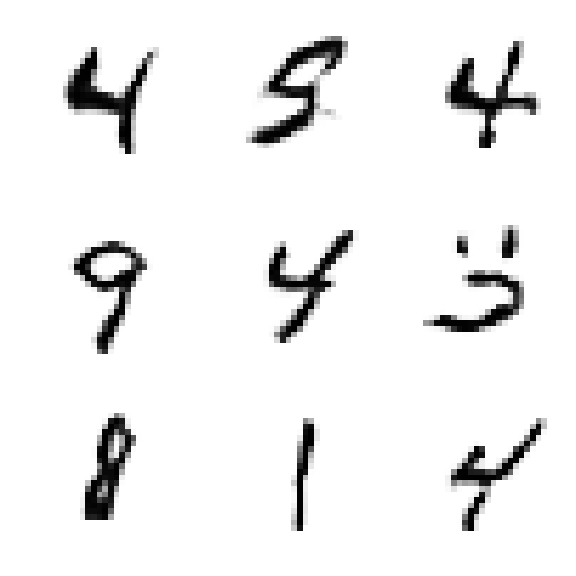 4 5 4
9 4 5
8 1 4